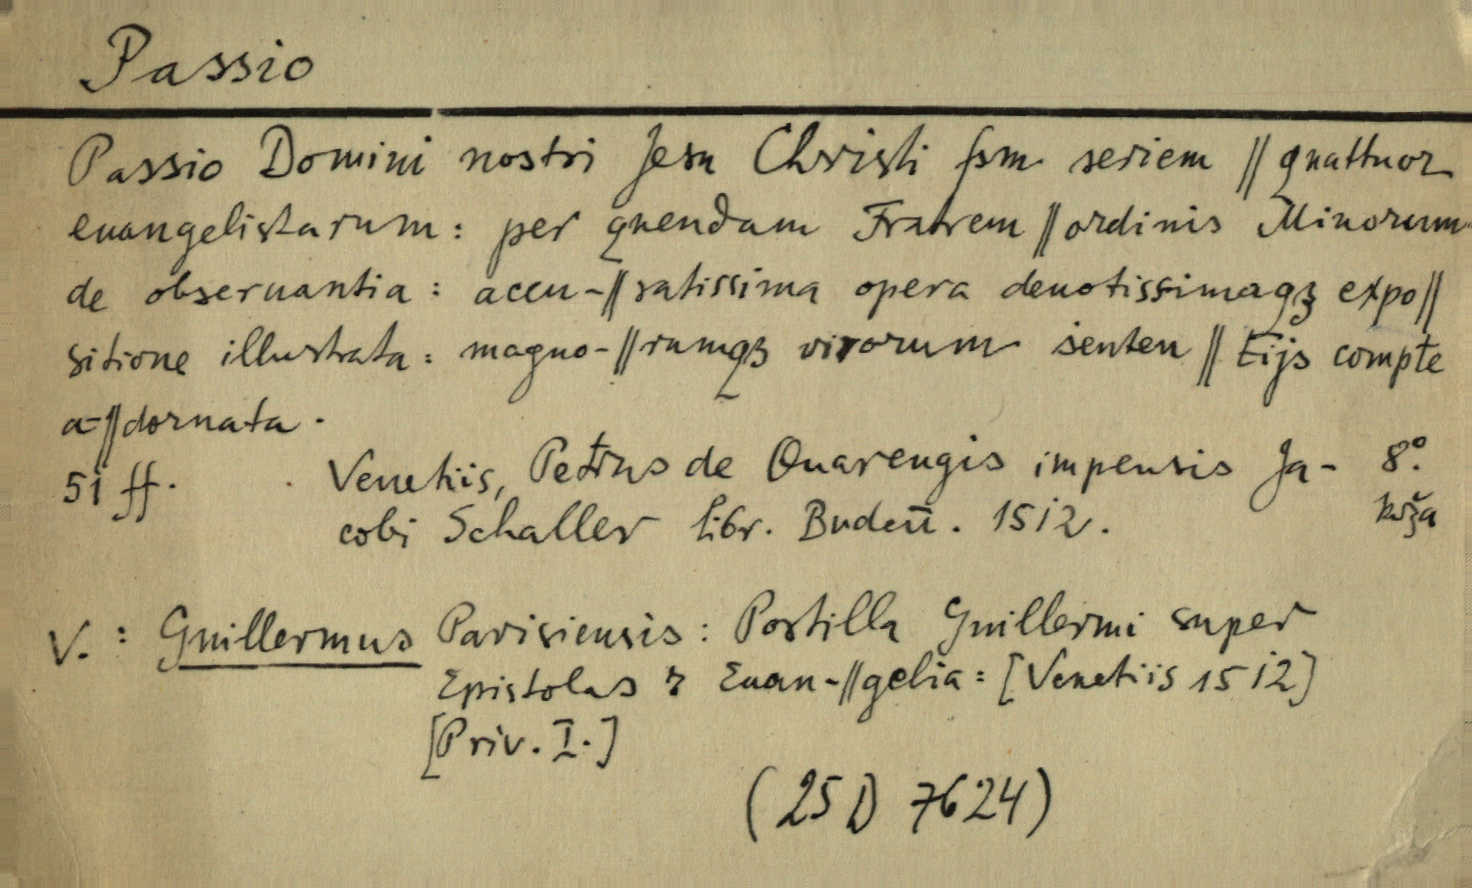 Passio
Passio Domini nostri Jesu Christi fsm seriem || quattuor
euangelistarum : per quendam Fratrem || ordinis Minorum
de obseruantia : accu-|| ratissima opera deuotissimaqꝫ expo ||
sitione illustrata : magno-|| rumqꝫ virorum senten || tijs compte
a-|| dornata .
51 ff. Venetiis, Petrus de Quarengis impensis Ja- 8°.
cobi Schaller libr. Budeñ. 1512. koža
V. : Guillermus Parisiensis : Postilla Guillermi super
Epistolas ⁊ Euan-|| gelia : [Venetiis 1512]
[Priv. I.]
(25 D 7624)